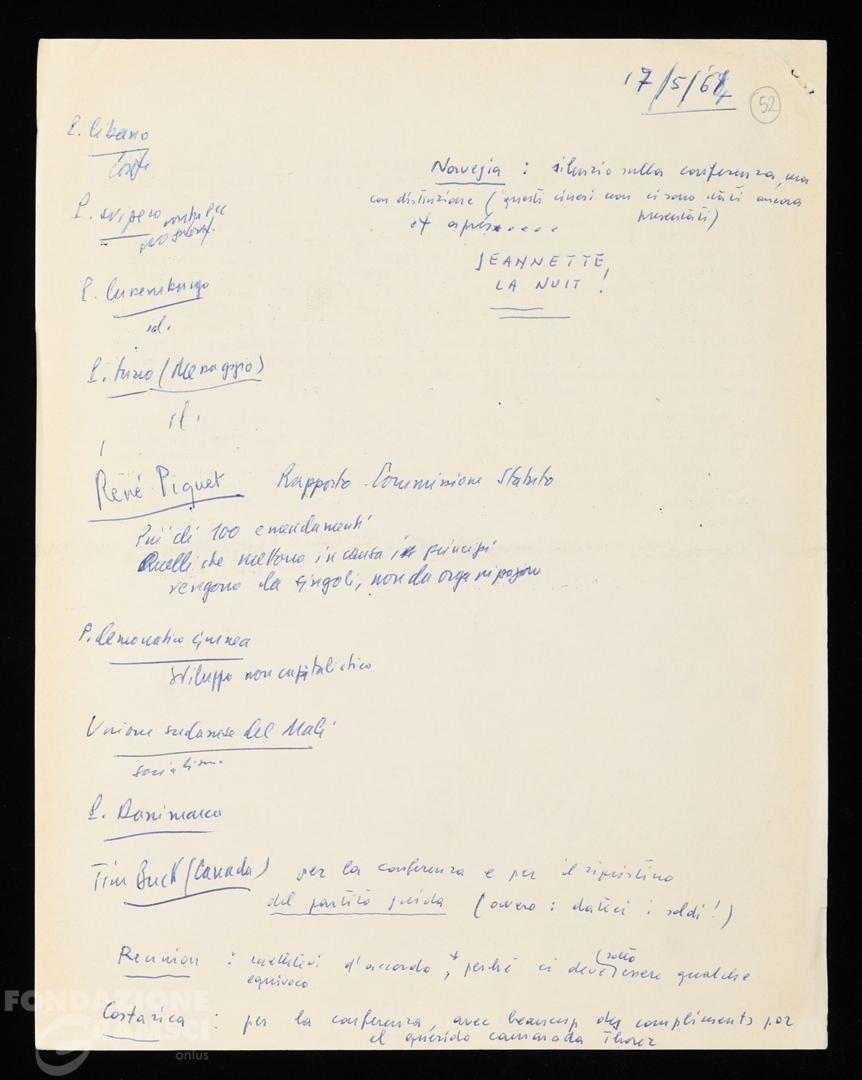 17/5/64
52
P. libano
P. svizzero
P. lussemburgo
id.
P. turco (Messaggio)
id.
Norvegia : silenzio sulla conferenza, ma
con distinzione (questi cinesi non ci sono stati ancora
presentati)
et après.....
JEANNETTE,
LA NUIT !
René Piquet Rapporto Commissione Statuto
Più di 100 emendamenti
Quelli che mettono in causa i principi
vengono da singoli, non da organizzazioni
P. democratico guinea
sviluppo non capitalistico
Unione sudanese del Mali
socialismo
P. Danimarca
Tim Buck (Canada) per la conferenza e per il ripristino
del partito guida (ovvero : dateci i soldi !)
Reunion : mettetevi d'accordo, perché ci deve (sotto) essere qualche
equivoco
Costarica : per la conferenza, avec beaucoup des compliments por
el querido camarada Thorez
FONDAZIONE
GRAMSCI
onlus